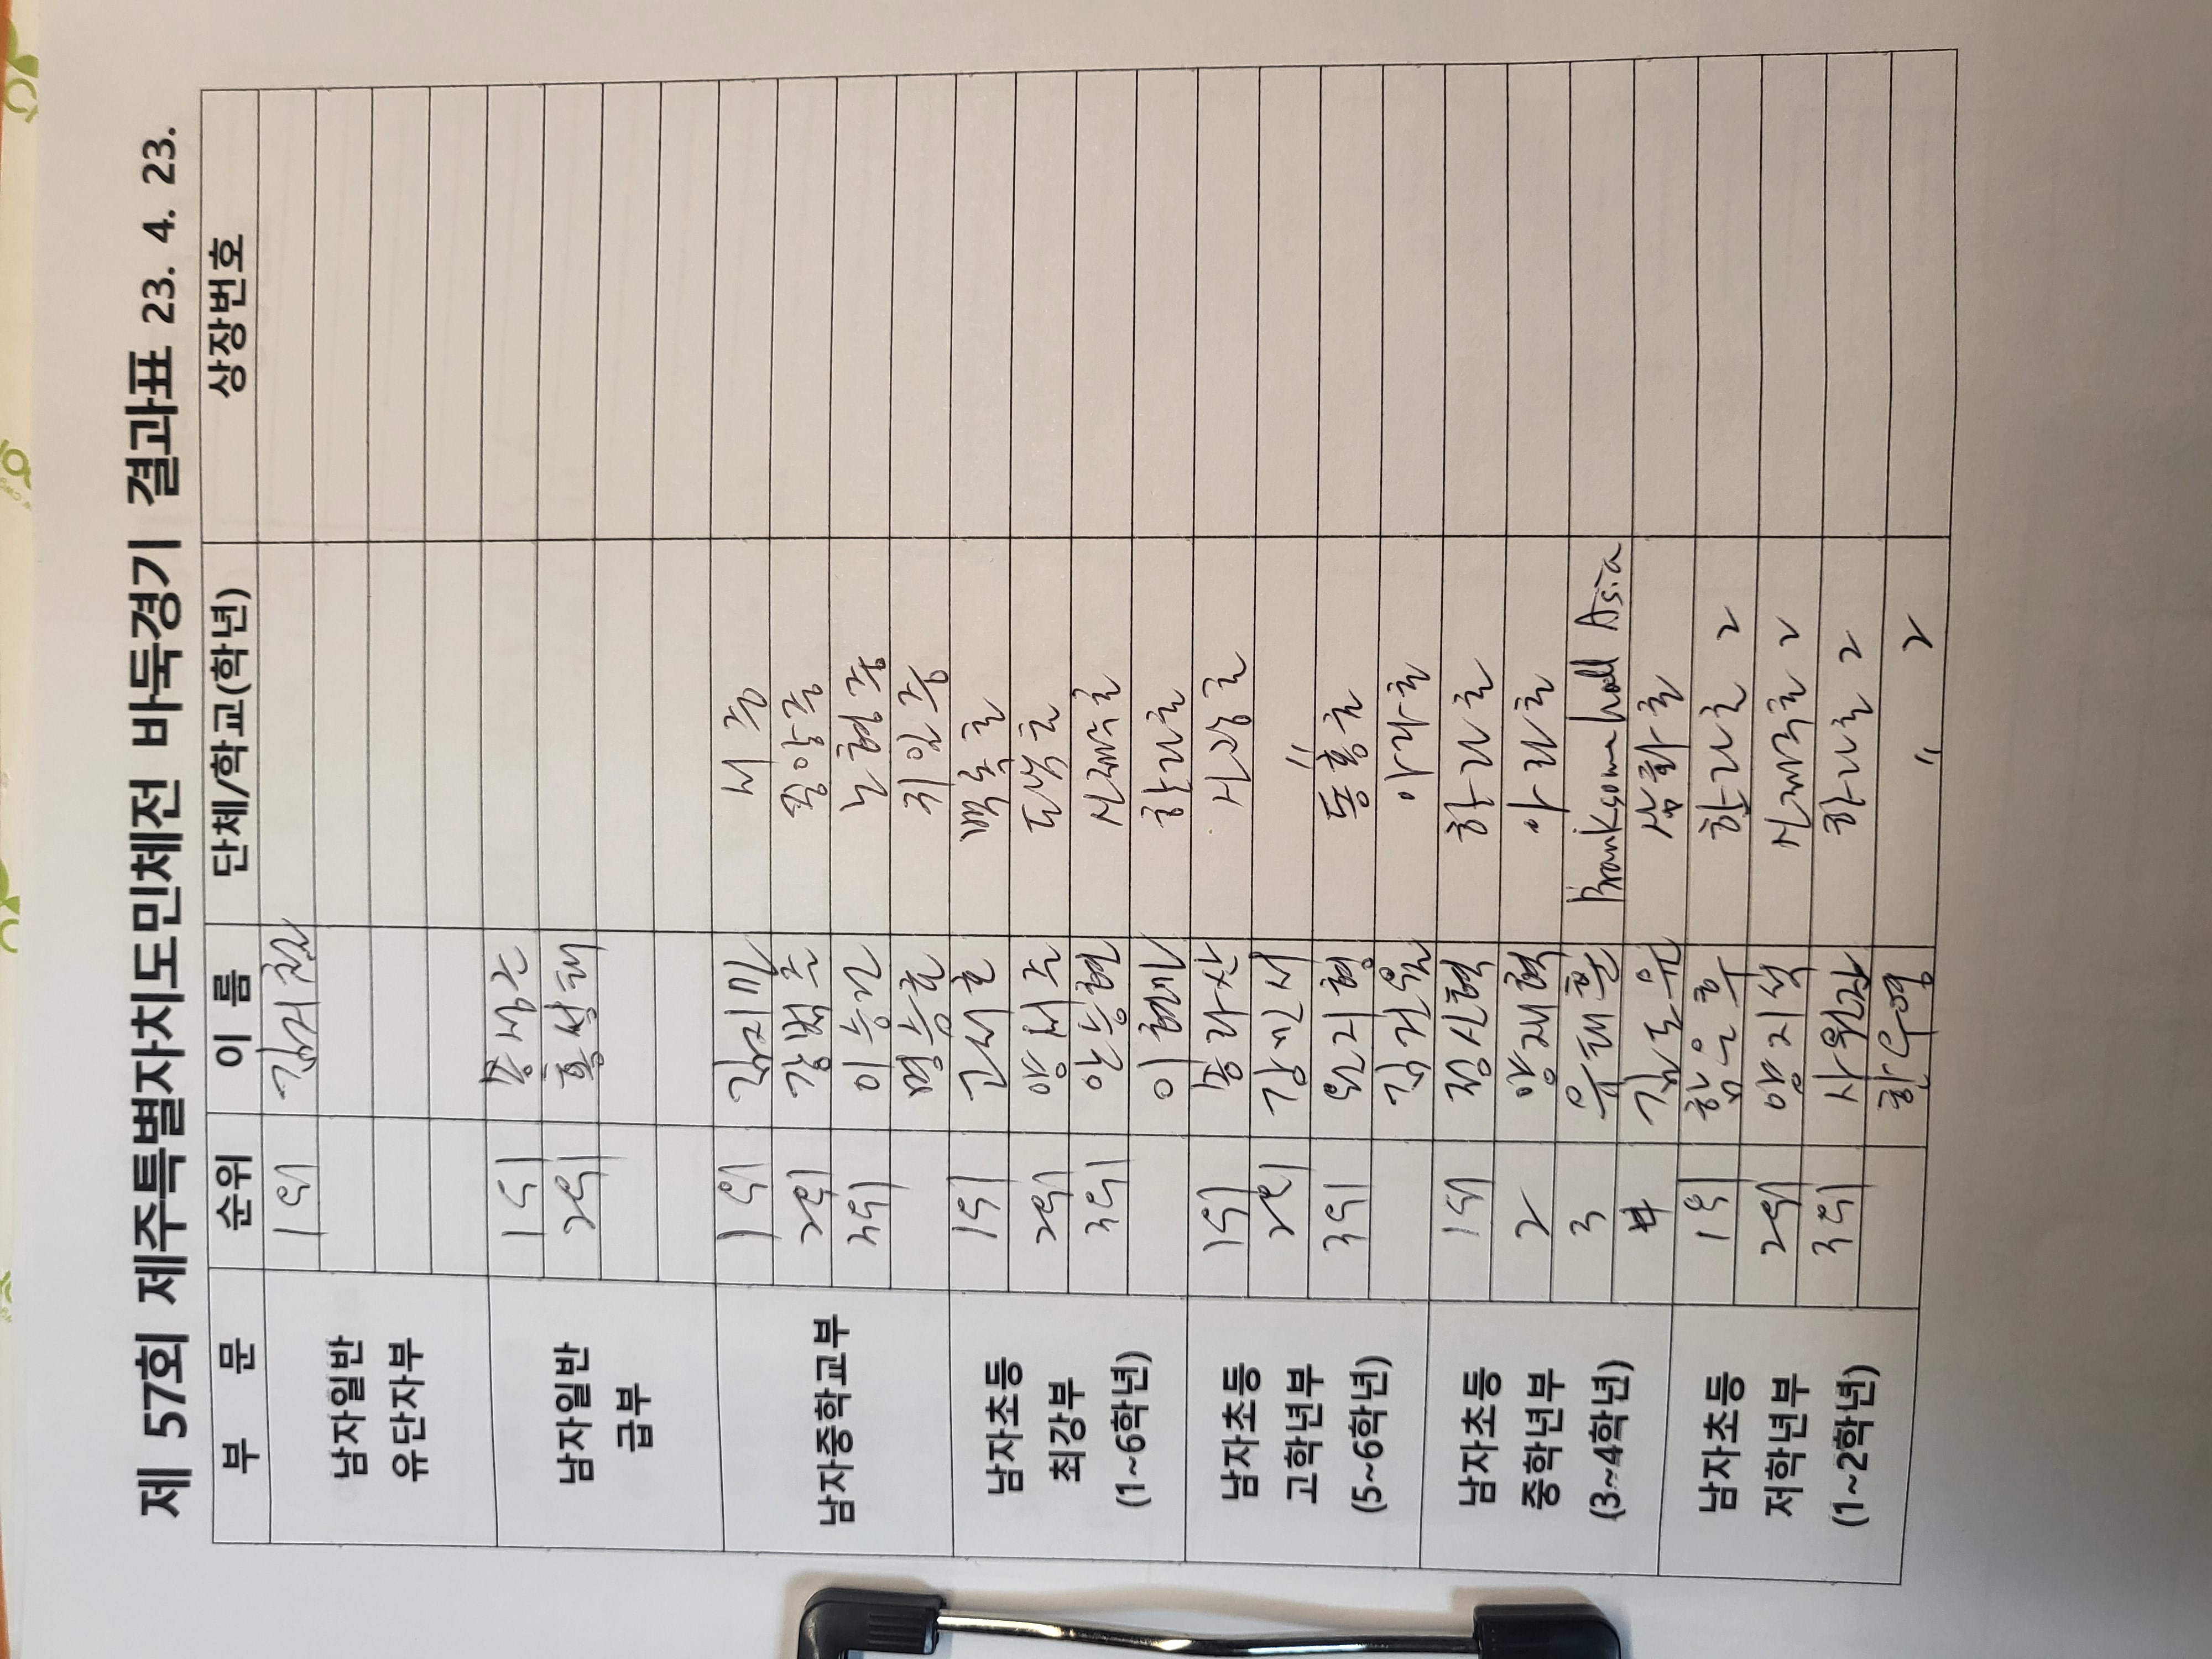 제 57회 제주특별자치도민체전 바둑경기 결과표 23. 4. 23.
부 문 순위 이 름 단체/학교(학년) 상장번호
남자일반 유단자부
1위
남자일반 급부
1위
2위 홍성태
남자중학교부
1위 김지민
2위 중앙중
3위 이승민 노형중
명승훈 귀일중
남자초등 최강부 (1~6학년)
1위 고서호 백록초
2위 양서준
3위 안승현 신제주초
이해민 한라초
남자초등 고학년부 (5~6학년)
1위 송라산 신광초
2위 강민서 "
3위 원지형 동홍초
아라초
남자초등 중학년부 (3~4학년)
1위 정신혁 한라초
2 양재혁 아라초
3 유태환 Branksome hall Asia
4 김도윤 삼화초
남자초등 저학년부 (1~2학년)
1위 한라초 2
2위 양지석 신제주초 2
3위 한라초 2
" 2